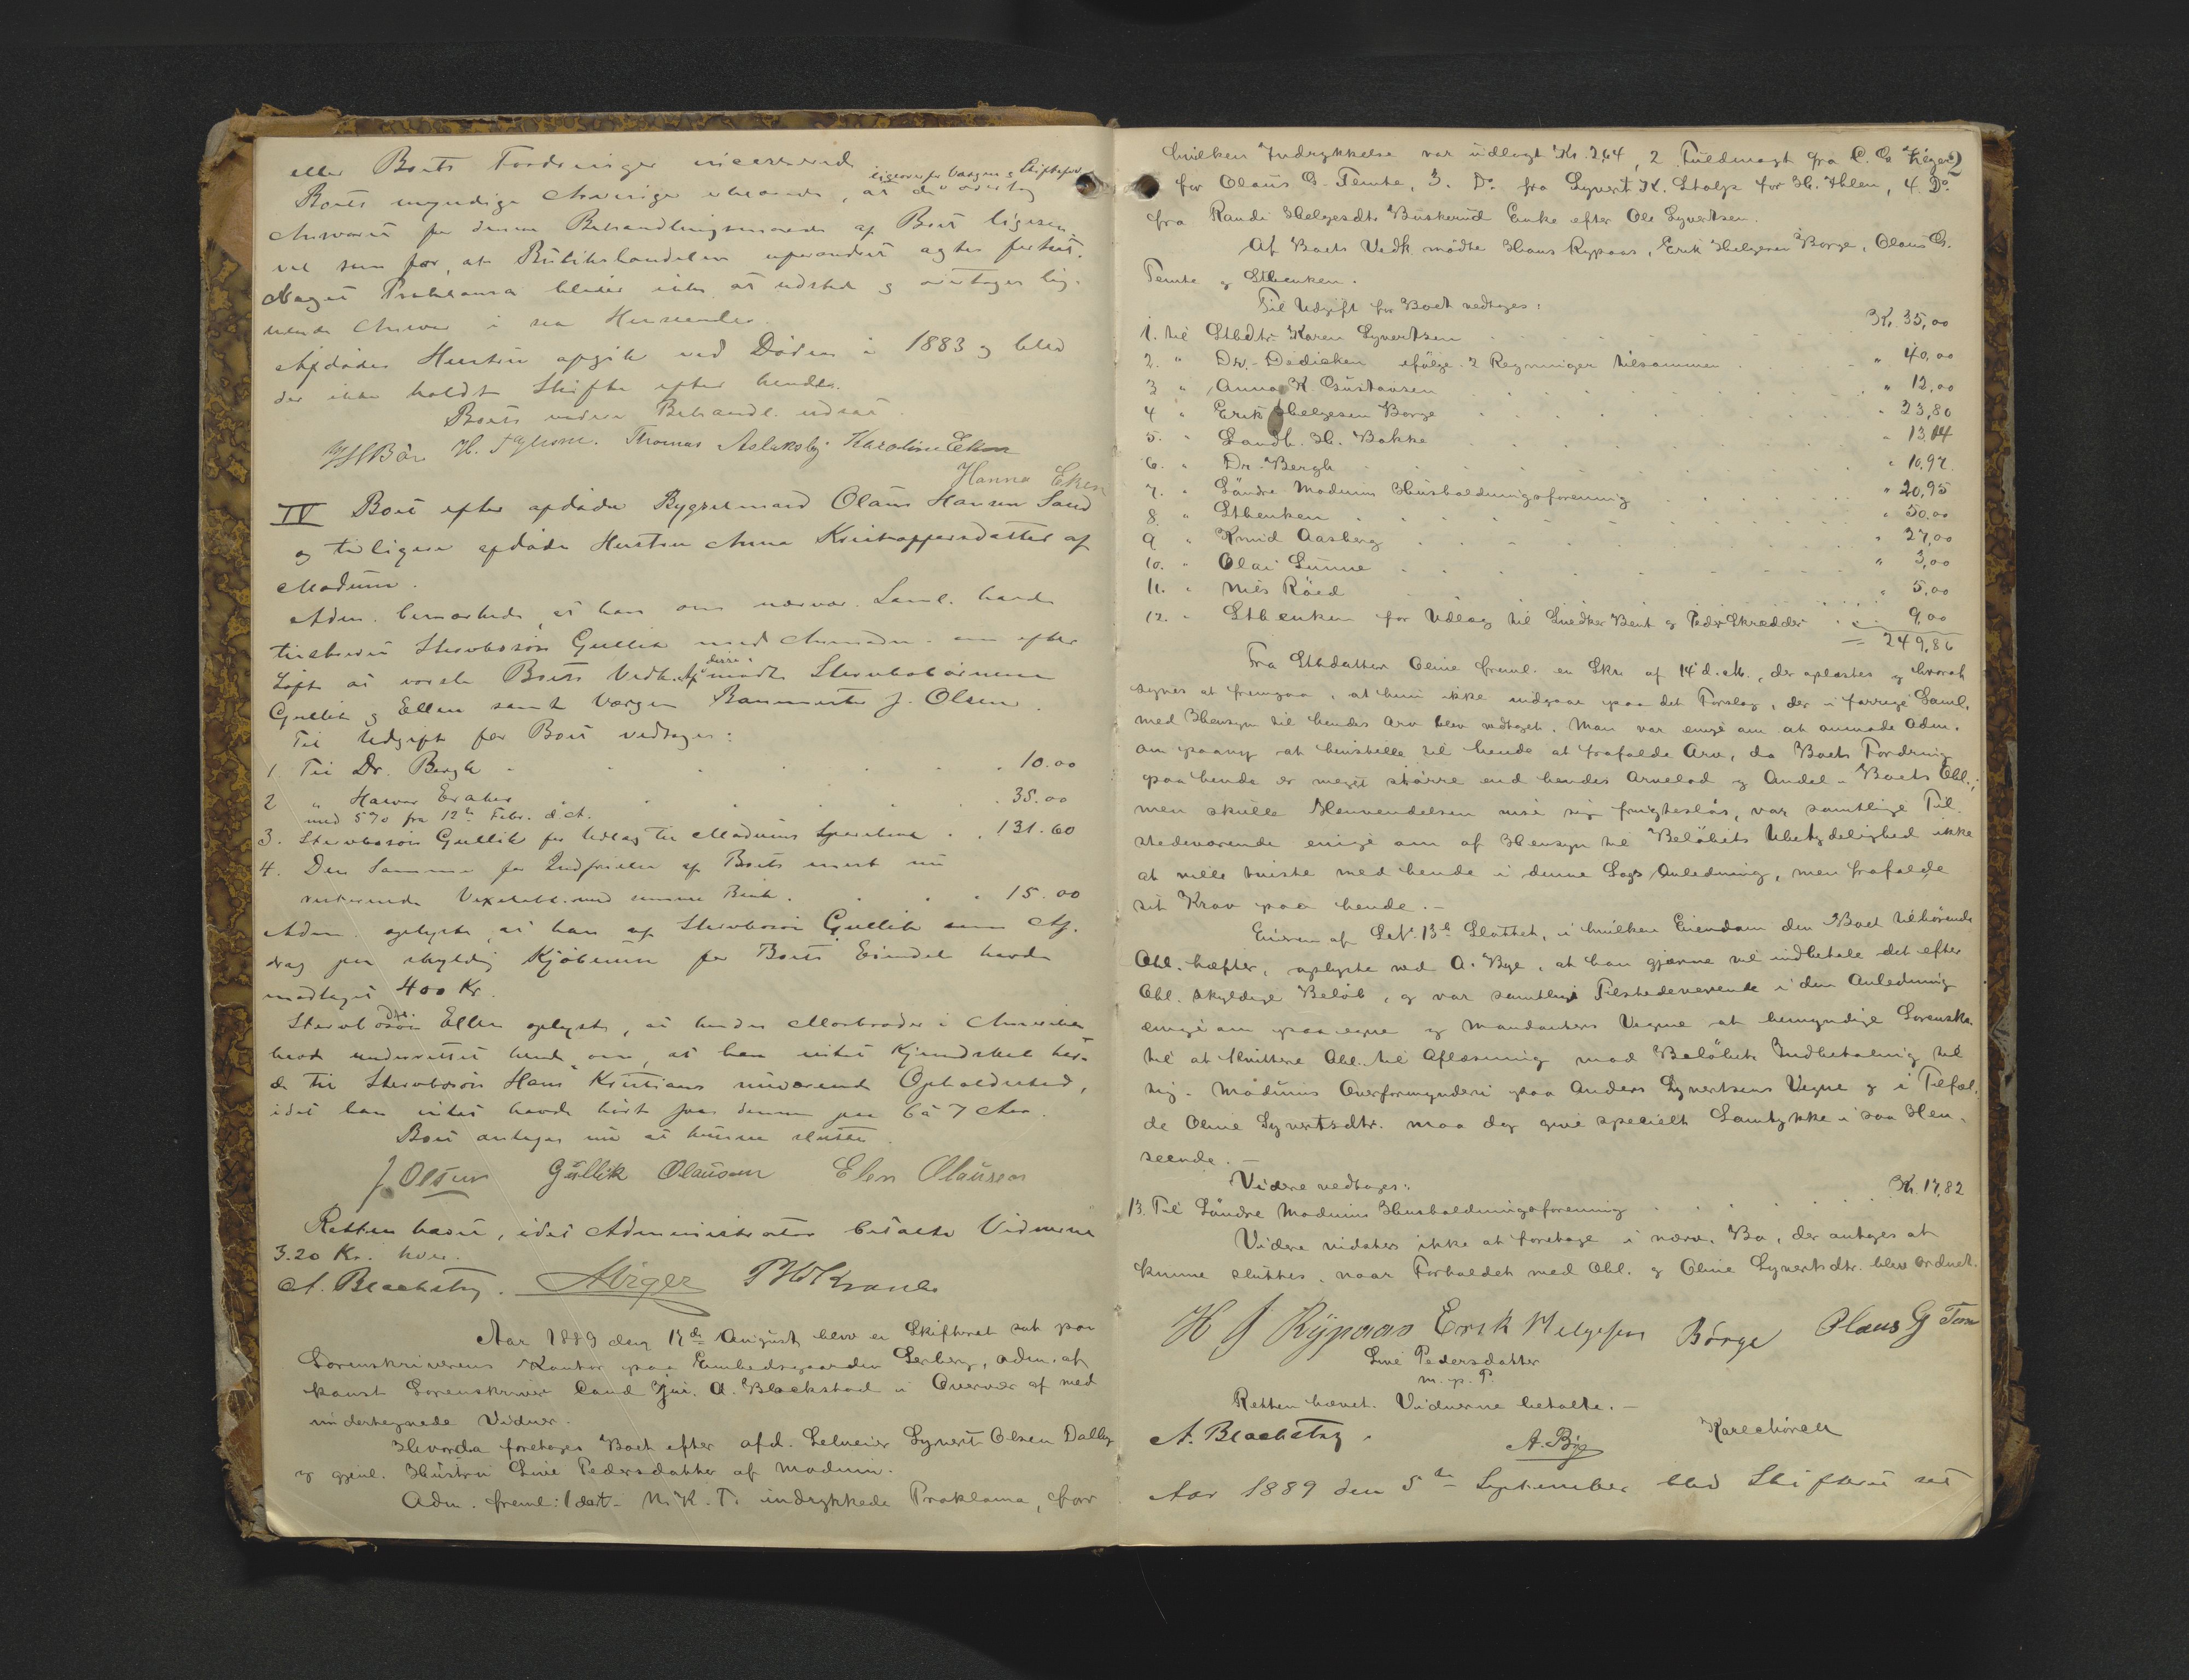 eller Boets Fordringer
ligeoverfor Værgen & Skifteforv.
Boets myndige Arvinger erklærede, at de overtog
Ansvaret for denne Behandlingsmaade af Boet ligesaa-
vel som for, at Butikshandelen uforandret agtes fortsat.
Noget Proklama bliver ikke at udstede og overtages lig-
nende Ansvar i saa Henseende.
Afdødes Hustru afgik ved Døden i 1883 og blev
der ikke holdt Skifte efter hende.
Boets videre Behandl. udsat
Thomas Aslaksby Karoline Eken
Hanna Eken
IV Boet efter afdøde Bygselmand Olaus Hansen Sand
og tidligere afdøde Hustru Anna Kristoffersdatter af
Modum.
Adm. bemærkede, at han om nærvær. Saml. havde
tilskrevet Stervbosøn Gullik med Anmodn. om efter
Løfte at varsle Boets Vedk. Af disse mødte Stervbobørnene
Gullik og Ellen samt Værgen Banemester J. Olsen.
Til Udgift for Boet vedtages:
1. Til Dr. Bergh . . . . . 10.00
2 " Halvor . . . . 35.00
med 5% fra 12te Febr. d. A.
3. Stervbosøn Gullik for Udlæg til Modums Sparebank . . 131.60
4. Den Samme for Indfrielse af Boets mest nu
resterende Vexelobl. med samme Bank . . . 15.00
Adm. oplyste, at han af Stervbosøn Gullik som Af-
drag paa skyldig Kjøbesum for Boets Eiendel havde
modtaget 400 Kr.
Stervbodtr. Ellen oplyste, at hendes Morbroder i Amerika
havde underrettet hende om, at han intet Kjendskab hav-
de til Stervbosøn Hans Kristians nuværende Opholdssted,
idet han intet havde hørt fra denne paa 6 à 7 Aar.
Boet antages nu at kunne sluttes.
J. Olsen Gullik Olausen Elen Olausen
Retten hævet, idet Administrator betalte Vidnerne
3.20 Kr. hver.
A. Blackstad.
Aar 1889 den 17de August blev en Skifteret sat paa
Sorenskriverens Kontor paa Embedsgaarden Lerberg, adm. af
const. Sorenskriver Cand. jur. A. Blackstad i Overvær af med
undertegnede Vidner.
Hvorda foretoges Boet efter afd. Selveier Syvert Olsen Dalby
og gjenl. Hustru Live Pedersdatter af Modum.
Adm. freml: 1 det i N. K. T. indrykkede Proklama, for
2
hvilken Indrykkelse var udlagt Kr. 2,64, 2 Fuldmagt fra
for Olaus G. Temte, 3. Do. fra Syvert K. Stalge for H. Ihlen, 4. Do.
fra Randi Helgesdtr. Buskerud Enke efter Ole Syvertsen.
Af Boets Vedk. mødte Hans Rypaas, Erik Helgesen Børge, Olaus G.
Temte og Stbenken.
Til Udgift for Boet vedtages:
1. til Stbdtr. Karen Syvertsen . . . Kr. 35,00
2. " Dr. Dedicken ifølge 2 Regninger tilsammen . . . " 40,00
3 " Anna K. Gustavsen . . . " 12,00
4 " Erik Helgesen Børge . . . " 23,80
5. " Landh. H. Bakke . . . " 13,14
6. " Dr. Bergh . . . " 10,97
7. " Søndre Modums Husholdningsforening . . . " 20,95
8. " Stbenken . . . " 50,00
9 " Knud Aasberg . . . " 27,00
10. " Olai Sunne . . . " 3,00
11. " Nils Røed . . . " 5,00
12. " Stbenken for Udlæg til Snedker Bent og Peder Skrædder . . . 9,00
= 249,86
Fra Stbdatter Oline freml. en Skr. af 14 d. M., der oplæstes og hvoraf
synes at fremgaa, at hun ikke indgaar paa det Forslag, der i forrige Saml.
med Hensyn til hendes Arv blev vedtaget. Man var enige om at anmode Adm.
om paany at henstille til hende at frafalde Arv, da Boets Fordring
paa hende er meget større end hendes Arvelod og Andel i Boets Obl.;
men skulle Henvendelsen vise sig frugtesløs, var samtlige Til-
stedeværende enige om af Hensyn til Beløbets Ubetydelighed ikke
at ville tviste med hende i denne Sags Anledning, men frafalde
sit Krav paa hende. —
Eieren af L.N. 13b Slottet, i hvilken Eiendom den Boet tilhørende
Obl. hæfter, oplyste ved A. Bye, at han gjærne vil indbetale det efter
Obl. skyldige Beløb, og var samtlige Tilstedeværende i den Anledning
enige om paa egne og Mandanters Vegne at bemyndige Sorenskr.
til at kvittere Obl. til Aflæsning mod Beløbets Indbetaling til
sig. Modums Overformynderi paa Anders Syvertsens Vegne og i Tilfæl-
de Oline Syvertsdtr. maa dog give specielt Samtykke i saa Hen-
seende. —
Videre vedtages:
13. Til Søndre Modums Husholdningsforening . . . Kr. 17,82
Videre vidstes ikke at foretage i nærv. Bo, der antages at
kunne sluttes, naar Forholdet med Obl. og Oline Syvertsdtr. blev ordnet.
H J Rypaas Erik Helgesen Børge Olaus G Tem
Live Pedersdatter
m. p. P.
Retten hævet. Vidnerne betalte. —
A. Blackstad. A. Bye
Aar 1889 den 5te September blev Skifteret sat